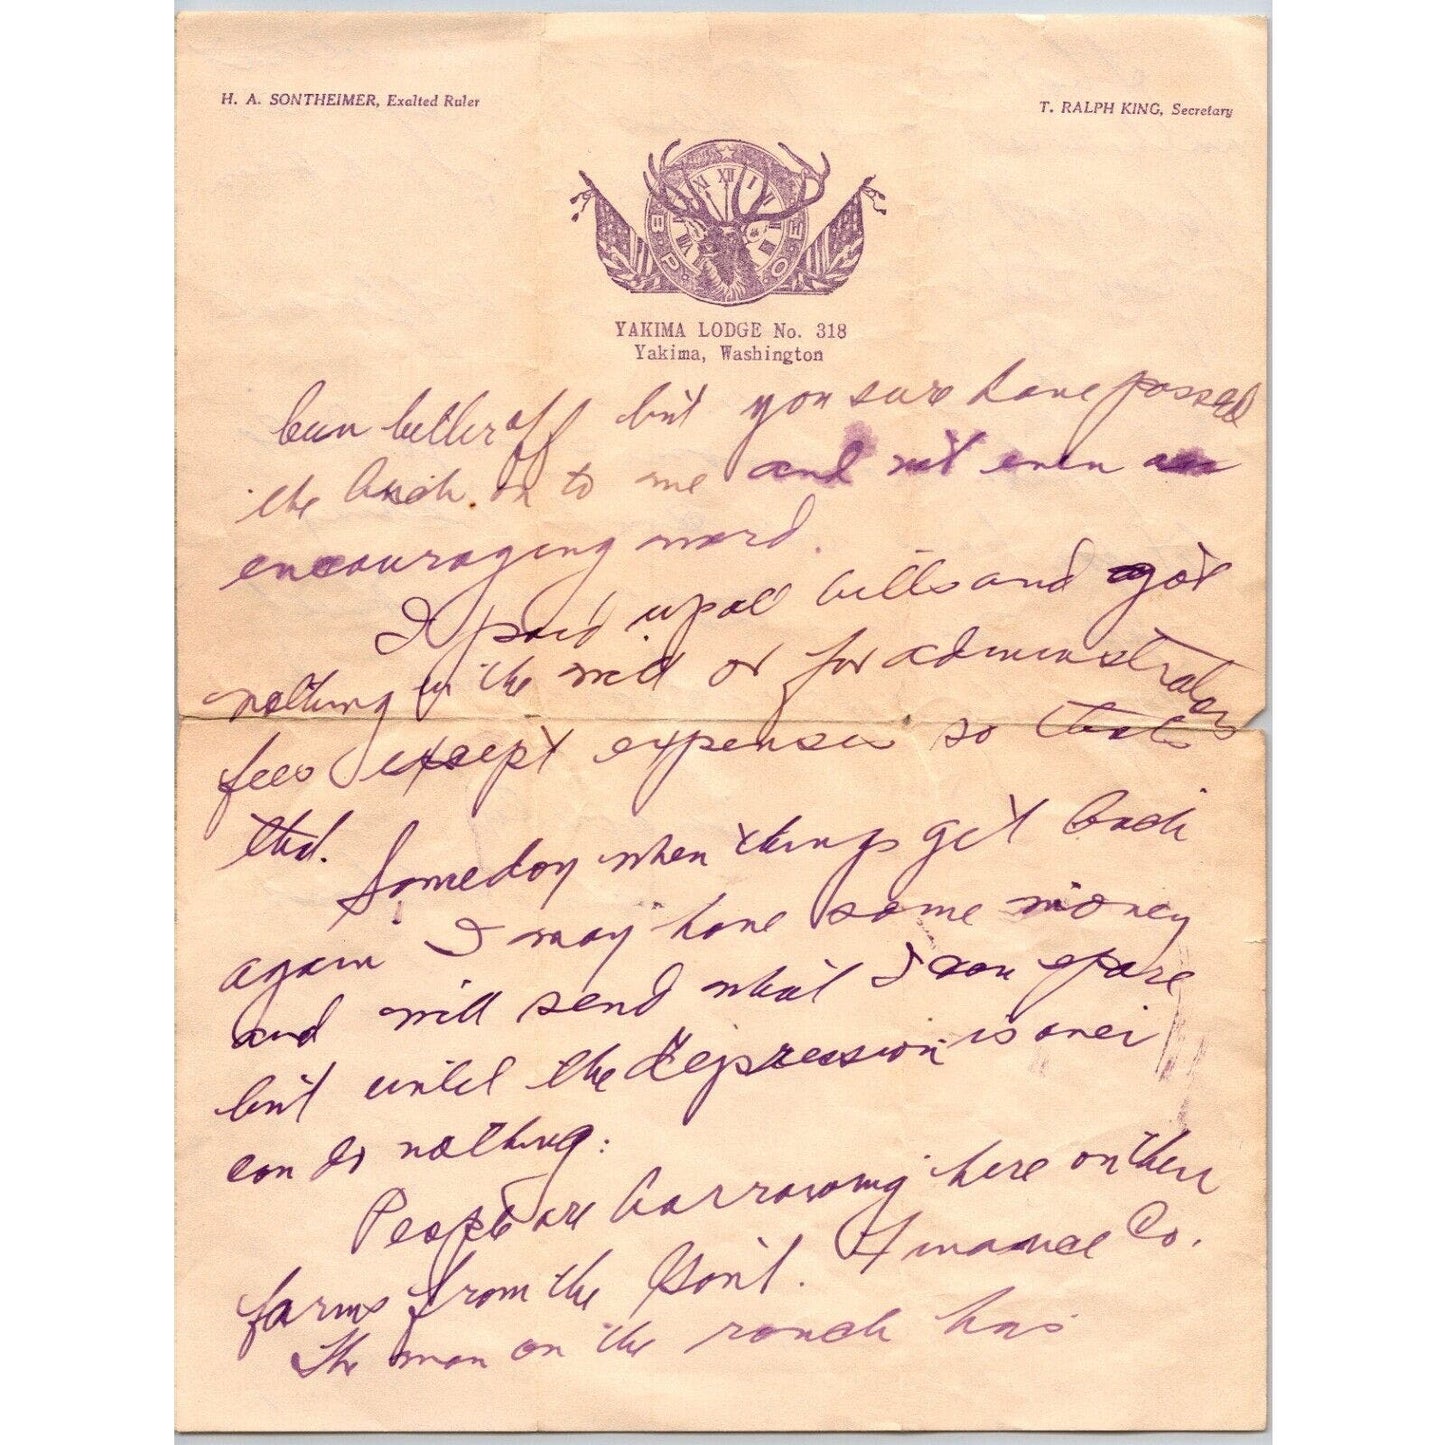 H. A. SONTHEIMER, Exalted Ruler
T. RALPH KING, Secretary
XI XII I
B P O E
YAKIMA LODGE No. 318
Yakima, Washington
been better off but you sure have passed
the buck on to me and not even an
encouraging word.
I paid up all bills and got
nothing in the will or for administrators
fees except expenses so that's
that.
Someday when things get back
again I may have some money
and will send what I can spare
but until the depression is over
can do nothing:
People are borrowing here on their
farms from the Gov't. Finance Co.
The man on the ranch has